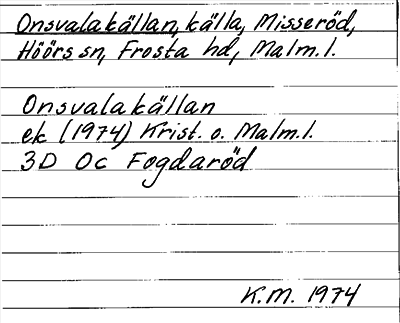 Onsvalakällan, källa, Misseröd,
Höörs sn, Frosta hd, Malm.l.
Onsvalakällan
ek (1974) Krist. o. Malm.l.
3D Oc Fogdaröd
K.M. 1974